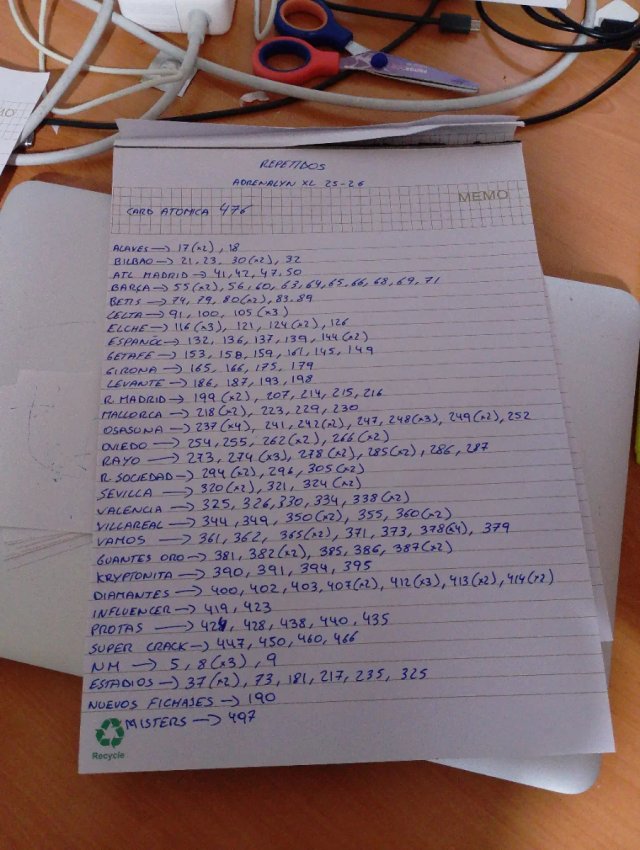 REPETIDOS
ADRENALYN XL 25-26
MEMO
CARD ATOMICA 476
ALAVES → 17(x2), 18
BILBAO → 21, 23, 30(x2), 32
ATL MADRID → 41, 42, 47, 50
BARÇA → 55(x2), 56, 60, 63, 64, 65, 66, 68, 69, 71
BETIS → 74, 79, 80(x2), 83, 89
CELTA → 91, 100, 105(x3)
ELCHE → 116(x3), 121, 124(x2), 126
ESPANÓL → 132, 136, 137, 139, 144(x2)
GETAFE → 153, 158, 159, 161, 145, 149
GIRONA → 165, 166, 175, 179
LEVANTE → 186, 187, 193, 198
R. MADRID → 199(x2), 207, 214, 215, 216
MALLORCA → 218(x2), 223, 229, 230
OSASUNA → 237(x4), 241, 242(x2), 247, 248(x3), 249(x2), 252
OVIEDO → 254, 255, 262(x2), 266(x2)
RAYO → 273, 274(x3), 278(x2), 285(x2), 286, 287
R. SOCIEDAD → 294(x2), 296, 305(x2)
SEVILLA → 320(x2), 321, 324(x2)
VALENCIA → 325, 326, 330, 334, 338(x2)
VILLAREAL → 344, 349, 350(x2), 355, 360(x2)
VAMOS → 361, 362, 365(x2), 371, 373, 378(x4), 379
GUANTES ORO → 381, 382(x2), 385, 386, 387(x2)
KRYPTONITA → 390, 391, 394, 395
DIAMANTES → 400, 402, 403, 407(x2), 412(x3), 413(x2), 414(x2)
INFLUENCER → 419, 423
PROTAS → 428, 438, 440, 435
SUPER CRACK → 447, 450, 460, 466
NM → 5, 8(x3), 9
ESTADIOS → 37(x2), 73, 181, 217, 235, 325
NUEVOS FICHAJES → 190
MISTERS → 497
Recycle